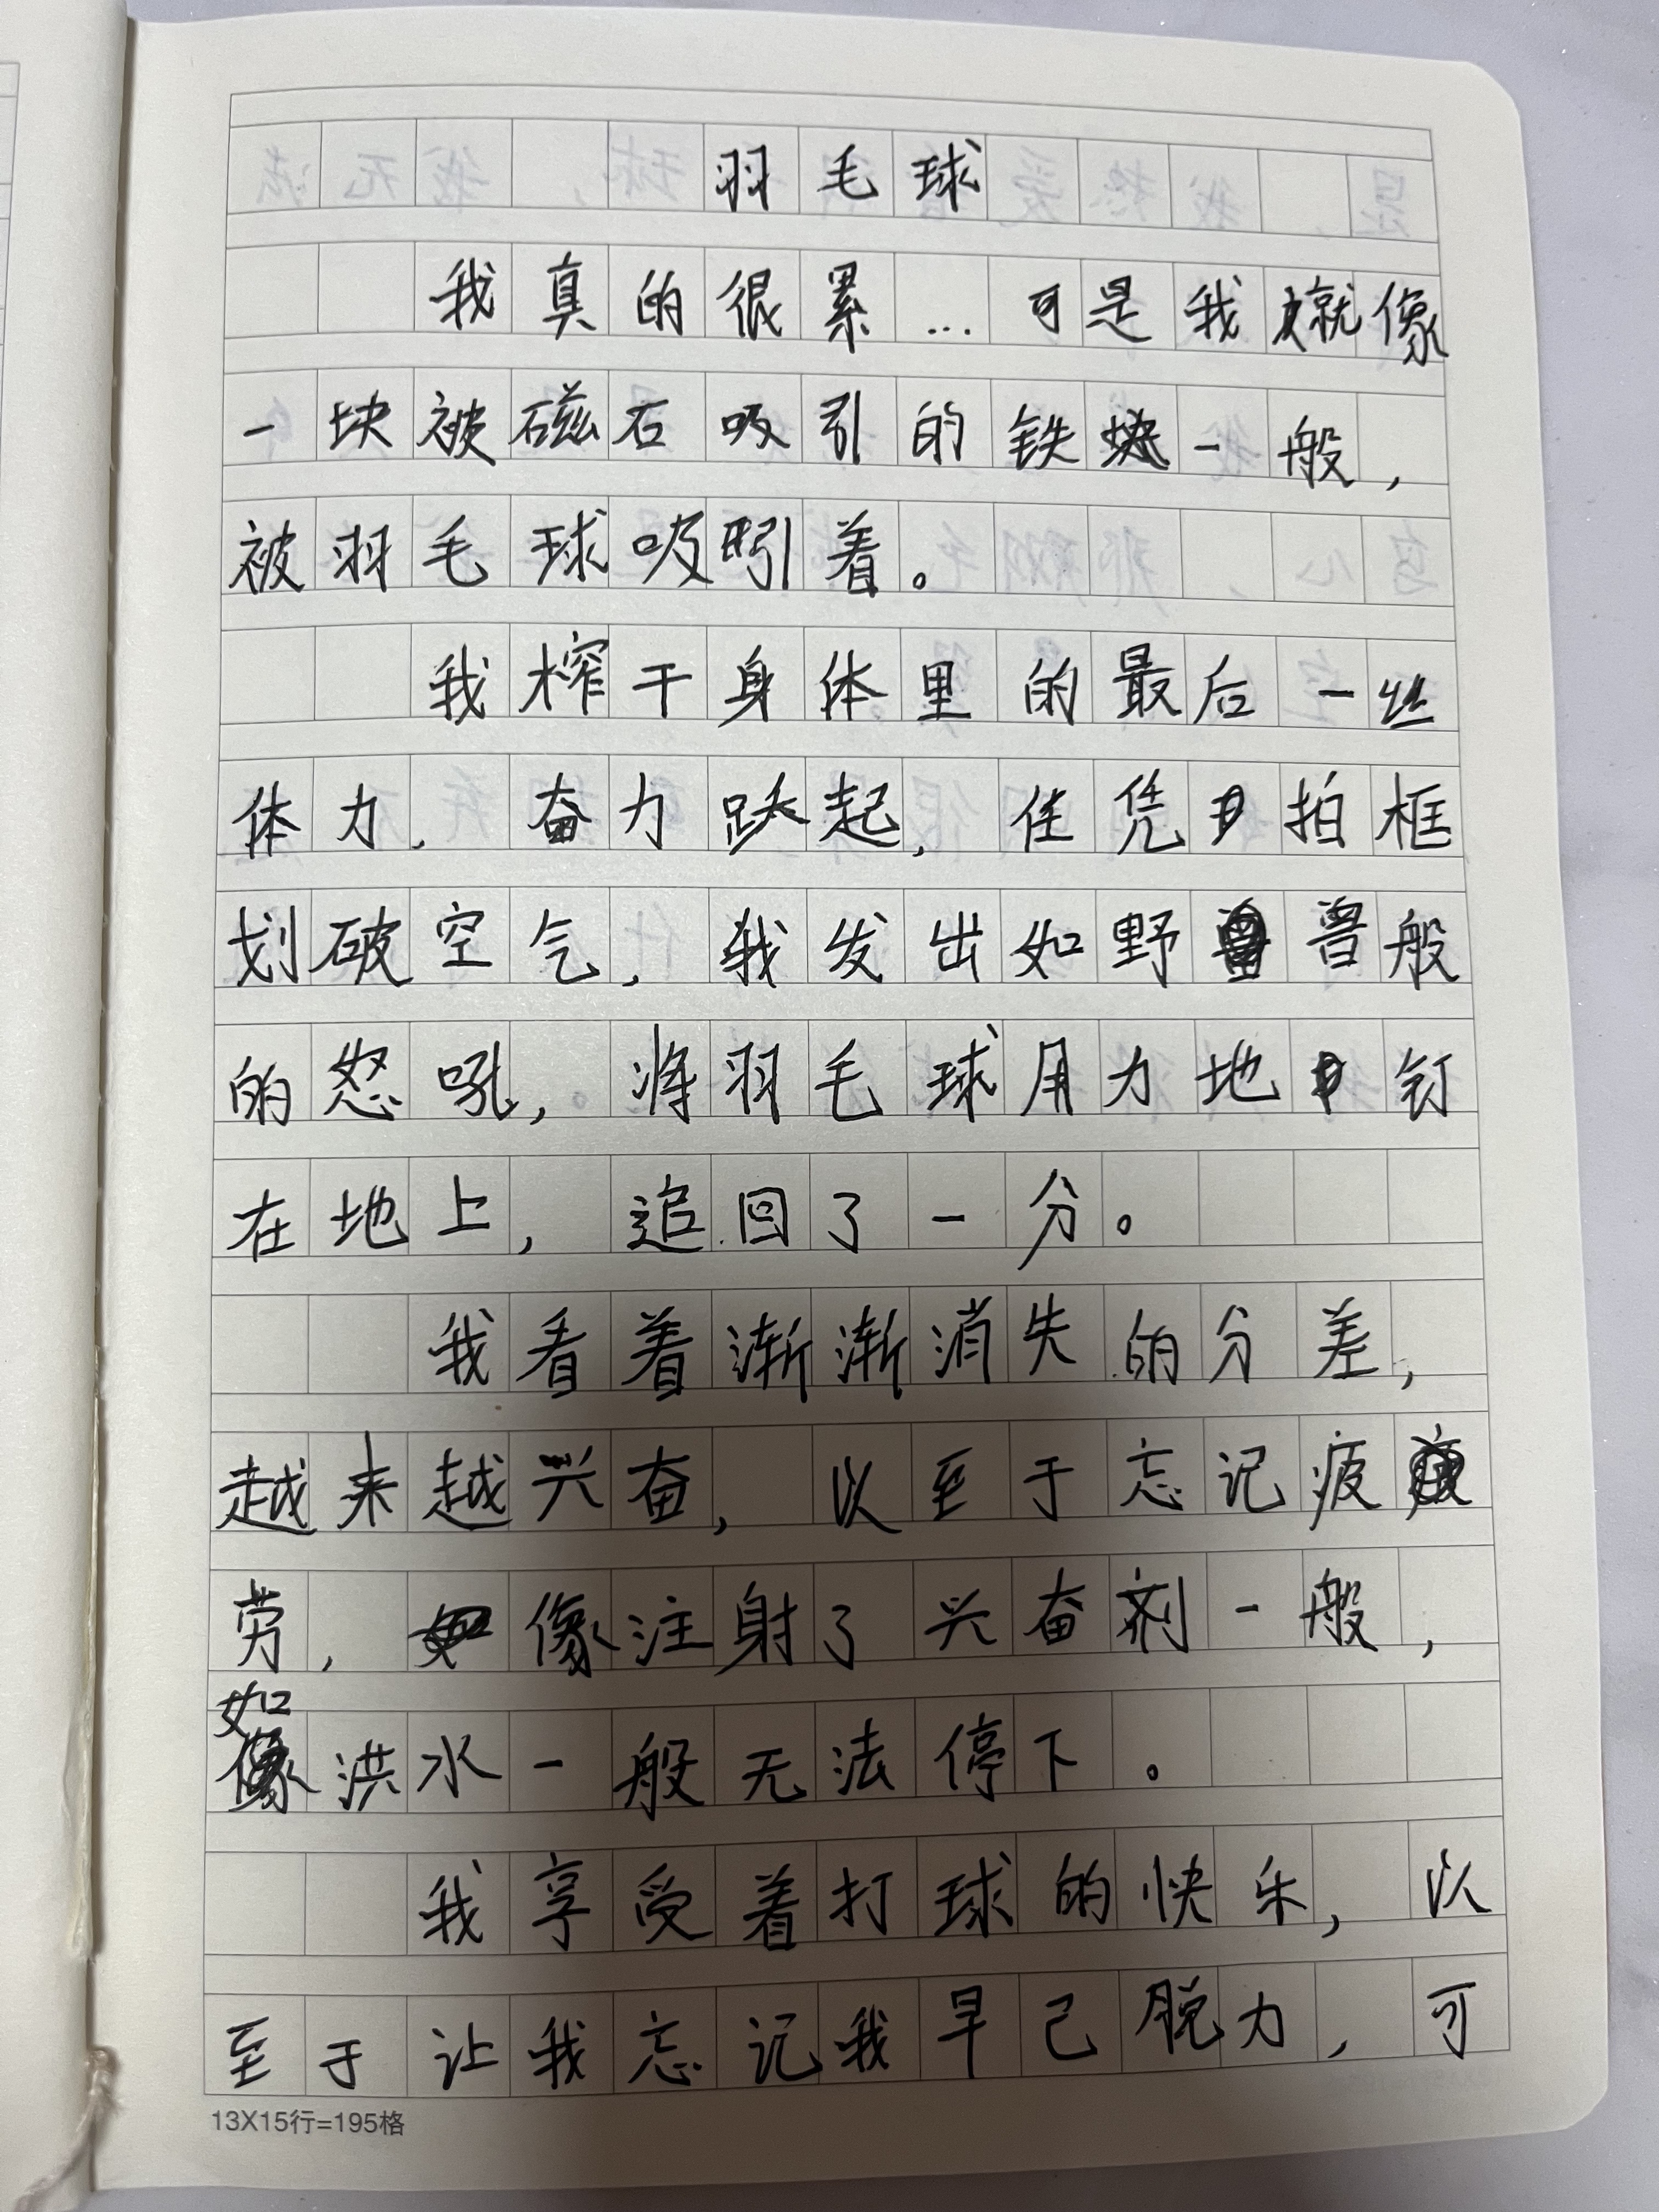 羽毛球
我真的很累…可是我就像
一块被磁石吸引的铁块一般，
被羽毛球吸引着。
我榨干身体里的最后一丝
体力，奋力跃起，任凭拍框
划破空气，我发出如野兽般
的怒吼，将羽毛球用力地钉
在地上，追回了一分。
我看着渐渐消失的分差，
越来越兴奋，以至于忘记疲
劳，像注射了兴奋剂一般，
如洪水一般无法停下。
我享受着打球的快乐，以
至于让我忘记我早已脱力，可
13X15行=195格